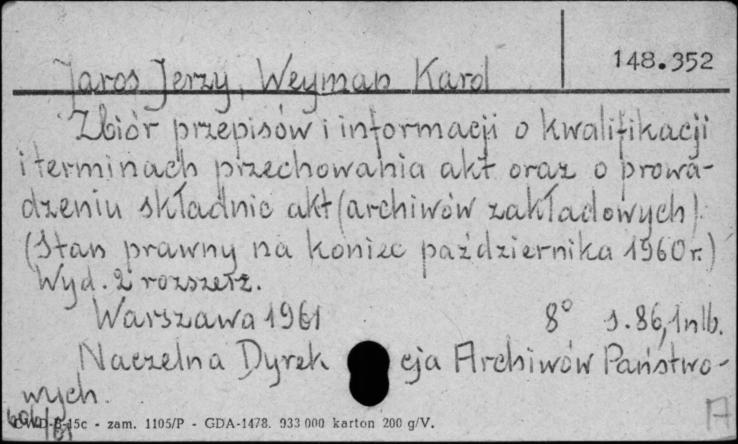 148.352
Jaros Jerzy, Weyman Karol
Zbiór przepisów i informacji o kwalifikacji
i terminach przechowania akt oraz o prowa-
dzeniu składnic akt (archiwów zakładowych).
(Stan prawny na koniec października 1960 r.)
Wyd. 2 rozszerz.
Warszawa 1961 8° s. 86, 1 nlb.
Naczelna Dyrek cja Archiwów Państwo-
wych.
-15c - zam. 1105/P - GDA-1478. 933 000 karton 200 g/V.
A